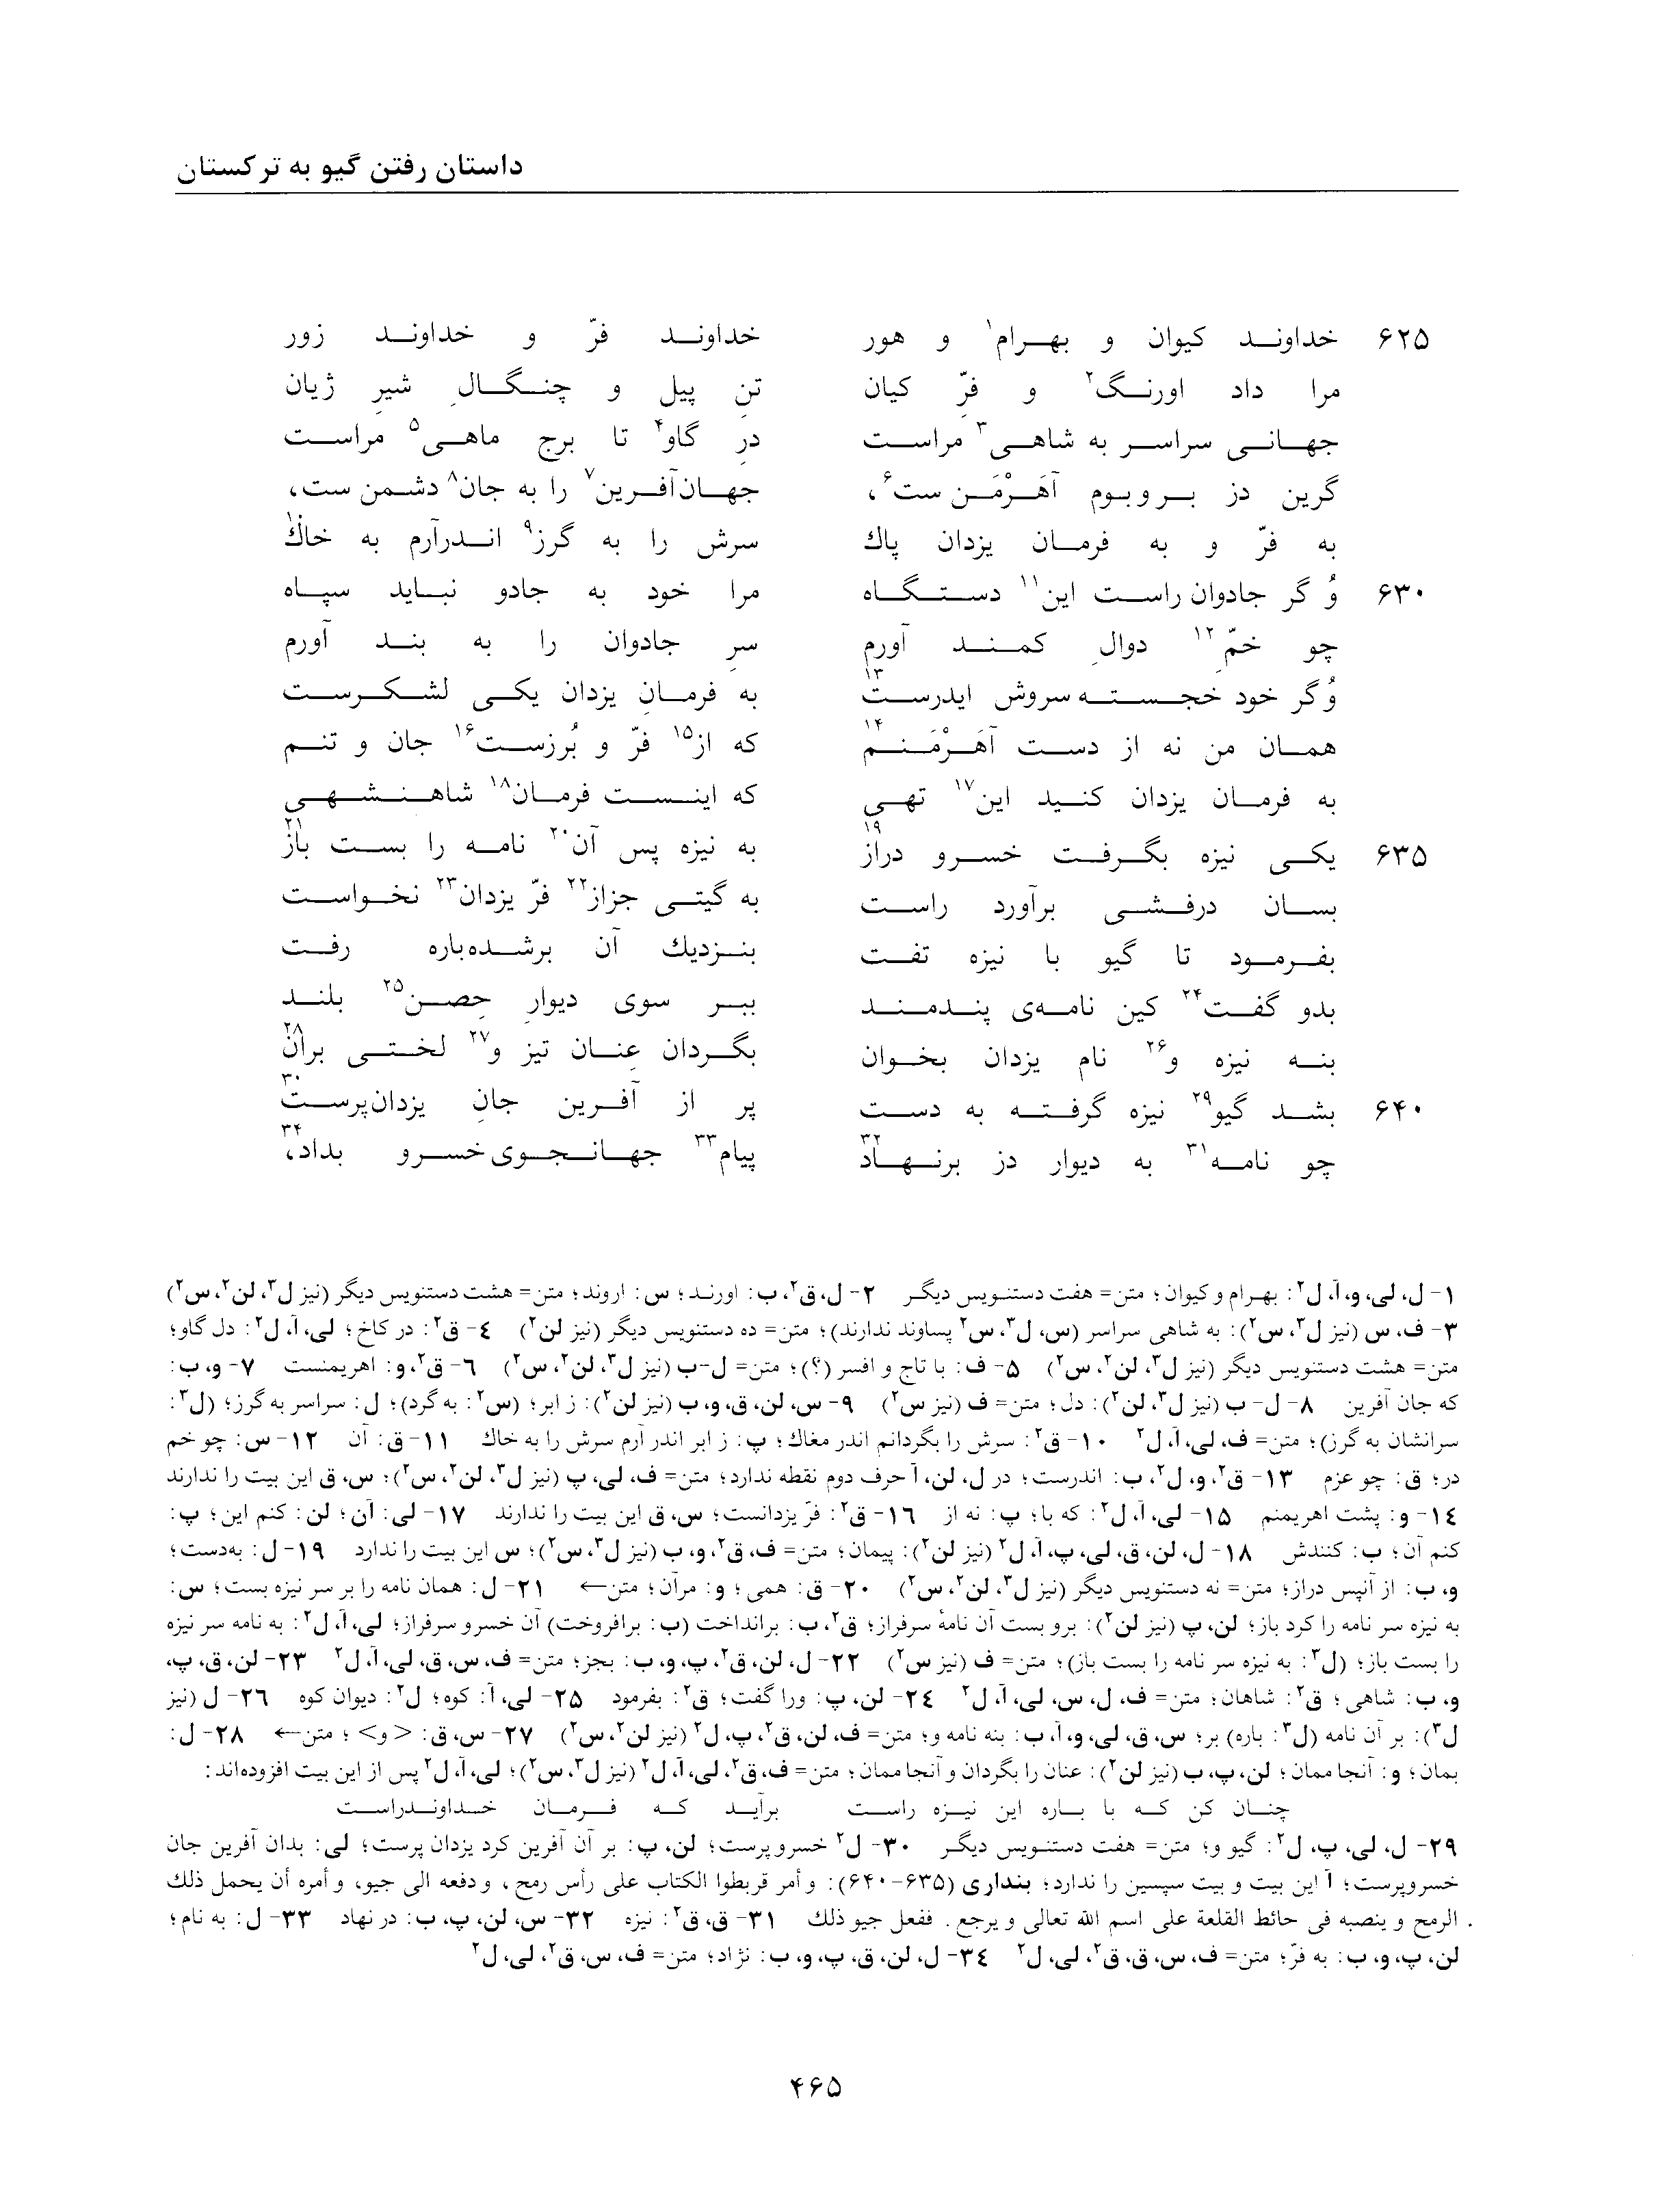 داستان رفتن گیو به ترکستان
۶۲۵ خداوند کیوان و بهرام۱ و هور خداوند فرّ و خداوند زور
مرا داد اورنگ۲ و فرِّ کیان تنِ پیل و چنگالِ شیرِ ژیان
جهانی سراسر به شاهی۳ مراست درِ گاو۴ تا برج ماهی۵ مراست
گرین دز بروبوم آهَرْمَن ست۶، جهان‌آفرین۷ را به جان۸ دشمن ست،
به فرّ و به فرمان یزدان پاك سرش را به گرز۹ اندرآرم به خاك۱۰
۶۳۰ وُ گر جادوان راست این۱۱ دستگاه مرا خود به جادو نباید سپاه
چو خمّ۱۲ دوالِ کمند آورم سرِ جادوان را به بند آورم
وُگر خود خجسته سروش ایدرست۱۳ به فرمانِ یزدان یکی لشکرست
همان من نه از دست آهَرْمَنم۱۴ که از۱۵ فرّ و بُرزست۱۶ جان و تنم
به فرمان یزدان کنید این۱۷ تهی که اینست فرمان۱۸ شاهنشهی
۶۳۵ یکی نیزه بگرفت خسرو دراز۱۹ به نیزه پس آن۲۰ نامه را بست باز۲۱
بسان درفشی برآورد راست به گیتی جزاز۲۲ فرّ یزدان۲۳ نخواست
بفرمود تا گیو با نیزه تفت بنزدیك آن برشده‌باره رفت
بدو گفت۲۴ کین نامه‌ی پندمند ببر سوی دیوارِ حِصن۲۵ بلند
بنه نیزه و۲۶ نام یزدان بخوان بگردان عِنان تیز و۲۷ لختی بران۲۸
۶۴۰ بشد گیو۲۹ نیزه گرفته به دست پر از آفرین جانِ یزدان‌پرست۳۰
چو نامه۳۱ به دیوار دز برنهاد۳۲ پیام۳۳ جهانجوی خسرو بداد،۳۴
۱- ل، لی، و، آ، ل۲: بهرام و کیوان؛ متن= هفت دستنویس دیگر ۲- ل، ق۲، ب: اورند؛ س: اروند؛ متن= هشت دستنویس دیگر (نیز ل۳، لن۲، س۲)
۳- ف، س (نیز ل۳، س۲): به شاهی سراسر (س، ل۳، س۲ پساوند ندارند)؛ متن= ده دستنویس دیگر (نیز لن۲) ۴- ق۲: در کاخ؛ لی، آ، ل۲: دل گاو؛
متن= هشت دستنویس دیگر (نیز ل۳، لن۲، س۲) ۵- ف: با تاج و افسر (؟)؛ متن= ل-ب (نیز ل۳، لن۲، س۲) ۶- ق۲، و: اهریمنست ۷- و، ب:
که جان آفرین ۸- ل- ب (نیز ل۳، لن۲): دل؛ متن= ف (نیز س۲) ۹- س، لن، ق، و، ب (نیز لن۲): ز ابر؛ (س۲: به گرد)؛ ل: سراسر به گرز؛ (ل۳:
سرانشان به گرز)؛ متن= ف، لی، آ، ل۲ ۱۰- ق۲: سرش را بگردانم اندر مغاك؛ پ: ز ابر اندر آرم سرش را به خاك ۱۱- ق: آن ۱۲- س: چو خم
در؛ ق: چو عزم ۱۳- ق۲، و، ل۲، ب: اندرست؛ در ل، لن، آ حرف دوم نقطه ندارد؛ متن= ف، لی، پ (نیز ل۳، لن۲، س۲)؛ س، ق این بیت را ندارند
۱۴- و: پشت اهریمنم ۱۵- لی، آ، ل۲: که با؛ پ: نه از ۱۶- ق۲: فرّ یزدانست؛ س، ق این بیت را ندارند ۱۷- لی: آن؛ لن: کنم این؛ پ:
کنم آن؛ ب: کنندش ۱۸- ل، لن، ق، لی، پ، آ، ل۲ (نیز لن۲): پیمان؛ متن= ف، ق۲، و، ب (نیز ل۳، س۲)؛ س این بیت را ندارد ۱۹- ل: به‌دست؛
و، ب: از آنپس دراز؛ متن= نه دستنویس دیگر (نیز ل۳، لن۲، س۲) ۲۰- ق: همی؛ و: مرآن؛ متن← ۲۱- ل: همان نامه را بر سر نیزه بست؛ س:
به نیزه سر نامه را کرد باز؛ لن، پ (نیز لن۲): برو بست آن نامهٔ سرفراز؛ ق۲، ب: برانداخت (ب: برافروخت) آن خسرو سرفراز؛ لی، آ، ل۲: به نامه سر نیزه
را بست باز؛ (ل۳: به نیزه سر نامه را بست باز)؛ متن= ف (نیز س۲) ۲۲- ل، لن، ق۲، پ، و، ب: بجز؛ متن= ف، س، ق، لی، آ، ل۲ ۲۳- لن، ق، پ،
و، ب: شاهی؛ ق۲: شاهان؛ متن= ف، ل، س، لی، آ، ل۲ ۲۴- لن، پ: ورا گفت؛ ق۲: بفرمود ۲۵- لی، آ: کوه؛ ل۲: دیوان کوه ۲۶- ل (نیز
ل۳): بر آن نامه (ل۳: باره) بر؛ س، ق، لی، و، آ، ب: بنه نامه و؛ متن= ف، لن، ق۲، پ، ل۲ (نیز لن۲، س۲) ۲۷- س، ق: <و>؛ متن← ۲۸- ل:
بمان؛ و: آنجا ممان؛ لن، پ، ب (نیز لن۲): عنان را بگردان و آنجا ممان؛ متن= ف، ق۲، لی، آ، ل۲ (نیز ل۳، س۲)؛ لی، آ، ل۲ پس از این بیت افزوده‌اند:
چنان کن که با باره این نیزه راست برآید که فرمان خداوندراست
۲۹- ل، لی، پ، ل۲: گیو و؛ متن= هفت دستنویس دیگر ۳۰- ل۲ خسروپرست؛ لن، پ: بر آن آفرین کرد یزدان پرست؛ لی: بدان آفرین جان
خسروپرست؛ آ این بیت و بیت سپسین را ندارد؛ بنداری (۶۳۵-۶۴۰): و أمر قربطوا الکتاب علی رأس رمح، و دفعه الی جیو، و أمره أن یحمل ذلك
الرمح و ینصبه فی حائط القلعة علی اسم الله تعالی و یرجع. ففعل جیو ذلك ۳۱- ق، ق۲: نیزه ۳۲- س، لن، پ، ب: در نهاد ۳۳- ل: به نام؛
لن، پ، و، ب: به فرّ؛ متن= ف، س، ق، ق۲، لی، ل۲ ۳۴- ل، لن، ق، پ، و، ب: نژاد؛ متن= ف، س، ق۲، لی، ل۲
۴۶۵